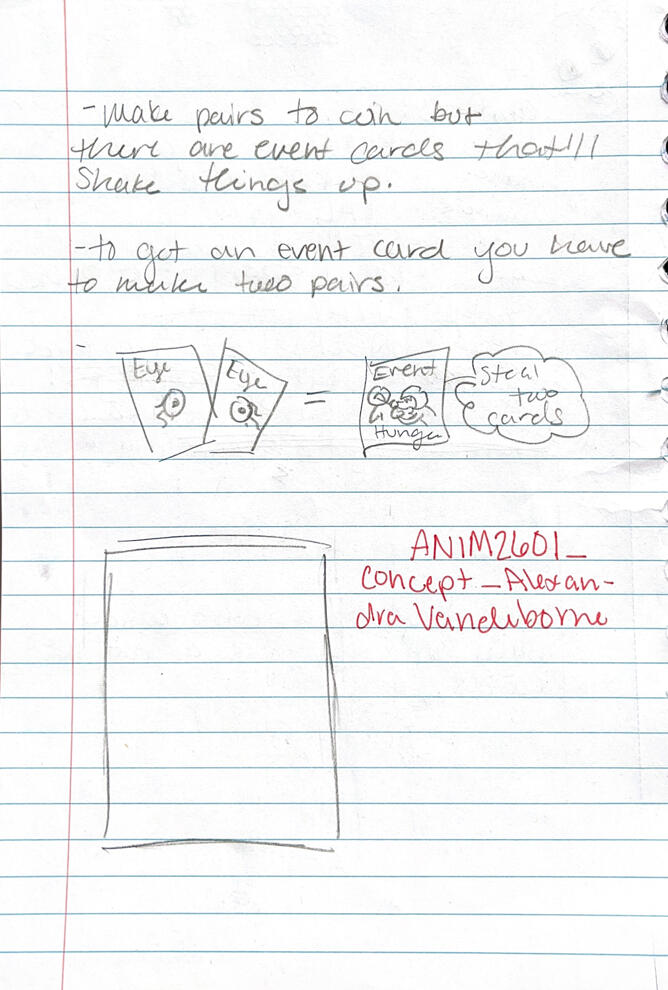 -Make pairs to win but
there are event cards that'll
Shake things up.
-to get an event card you have
to make two pairs.
-
Eye
Eye
=
Event
Hunger
Steal
two
cards
ANIM2601_
Concept_Alexan-
dra Vandiborne